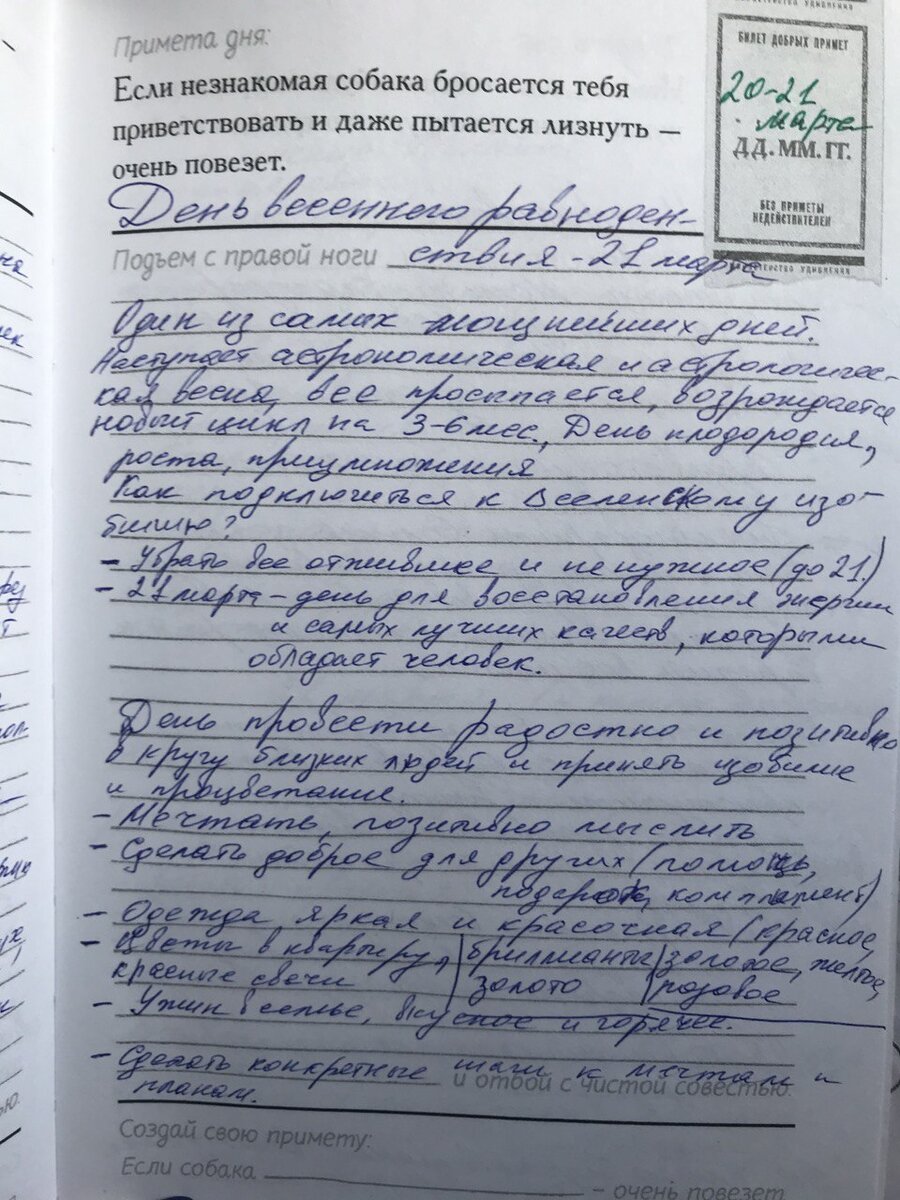 Примета дня:
Если незнакомая собака бросается тебя
приветствовать и даже пытается лизнуть —
очень повезет.
БИЛЕТ ДОБРЫХ ПРИМЕТ
20-21
марта
ДД. ММ. ГГ.
БЕЗ ПРИМЕТЫ
НЕДЕЙСТВИТЕЛЕН
День весеннего равноден-
Подъем с правой ноги ствия - 21 марта
Один из самых мощнейших дней.
Наступает астрономическая и астрологичес-
кая весна, все просыпается, возрождается
новый цикл на 3-6 мес., День плодородия,
роста, приумножения
Как подключиться к Вселенскому изо-
билию?
- Убрать все отжившее и ненужное (до 21.)
- 21 марта - день для восстановления энергии
и самых лучших качеств, которыми
обладает человек.
День провести радостно и позитивно
в кругу близких людей и принять изобилие
и процветание.
- Мечтать, позитивно мыслить
- Сделать доброе для других (помощь,
подарок, комплимент)
- Одежда яркая и красочная (красное,
- Цветы в квартиру, бриллианты золотое, желтое,
красные свечи золото розовое
- Ужин в семье, вкусное и горячее.
- Сделать конкретные шаги к мечтам и
и отбой с чистой совестью.
планам.
Создай свою примету:
Если собака
— очень повезет